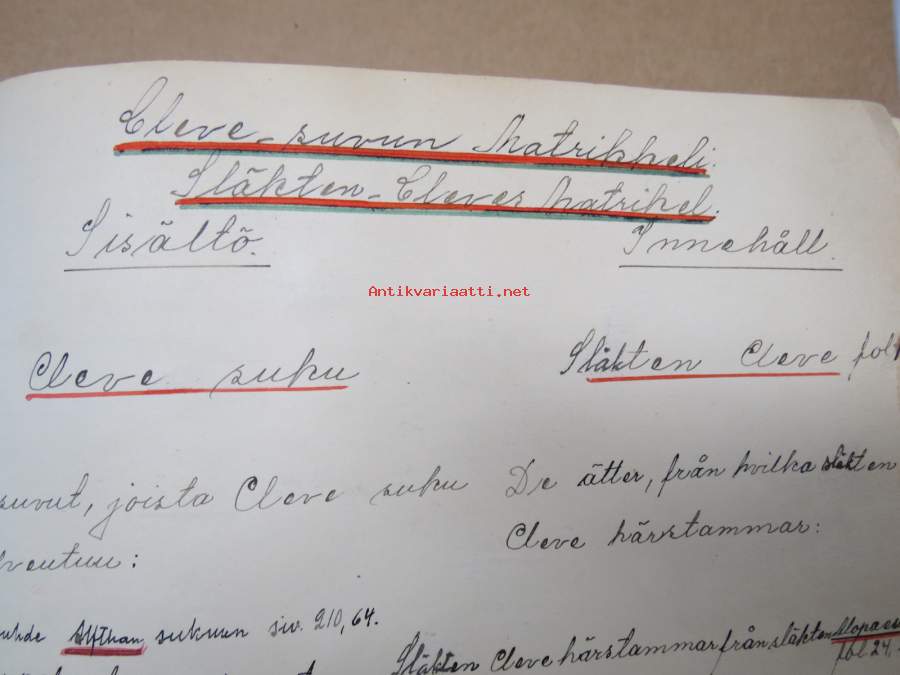 Cleve-suvun Matrikkeli.
Släkten-Cleves Matrikel.
Sisältö. Innehåll.
Antikvariaatti.net
Cleve suku Släkten Cleve fol
suvut, joista Cleve suku
De ätter, från hvilka släkten
Cleve härstammar:
suhde Alfthan sukuun siv. 210, 64.
Släkten Cleve härstammar från släkten Alopaeus
fol. 24.